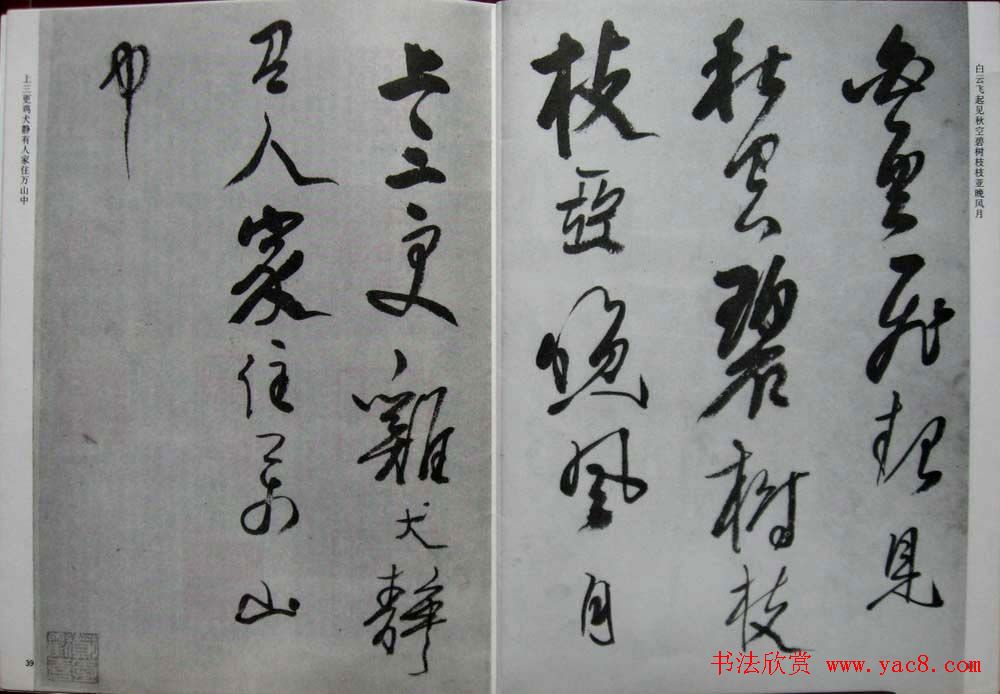 白云飞起见秋空碧树枝枝亚晚风月
白雲飛起見
秋空碧樹枝
枝亞晚風月
上三更雞犬靜
有人家住萬山
中
上三更鸡犬静有人家住万山中
39
书法欣赏 www.yac8.com